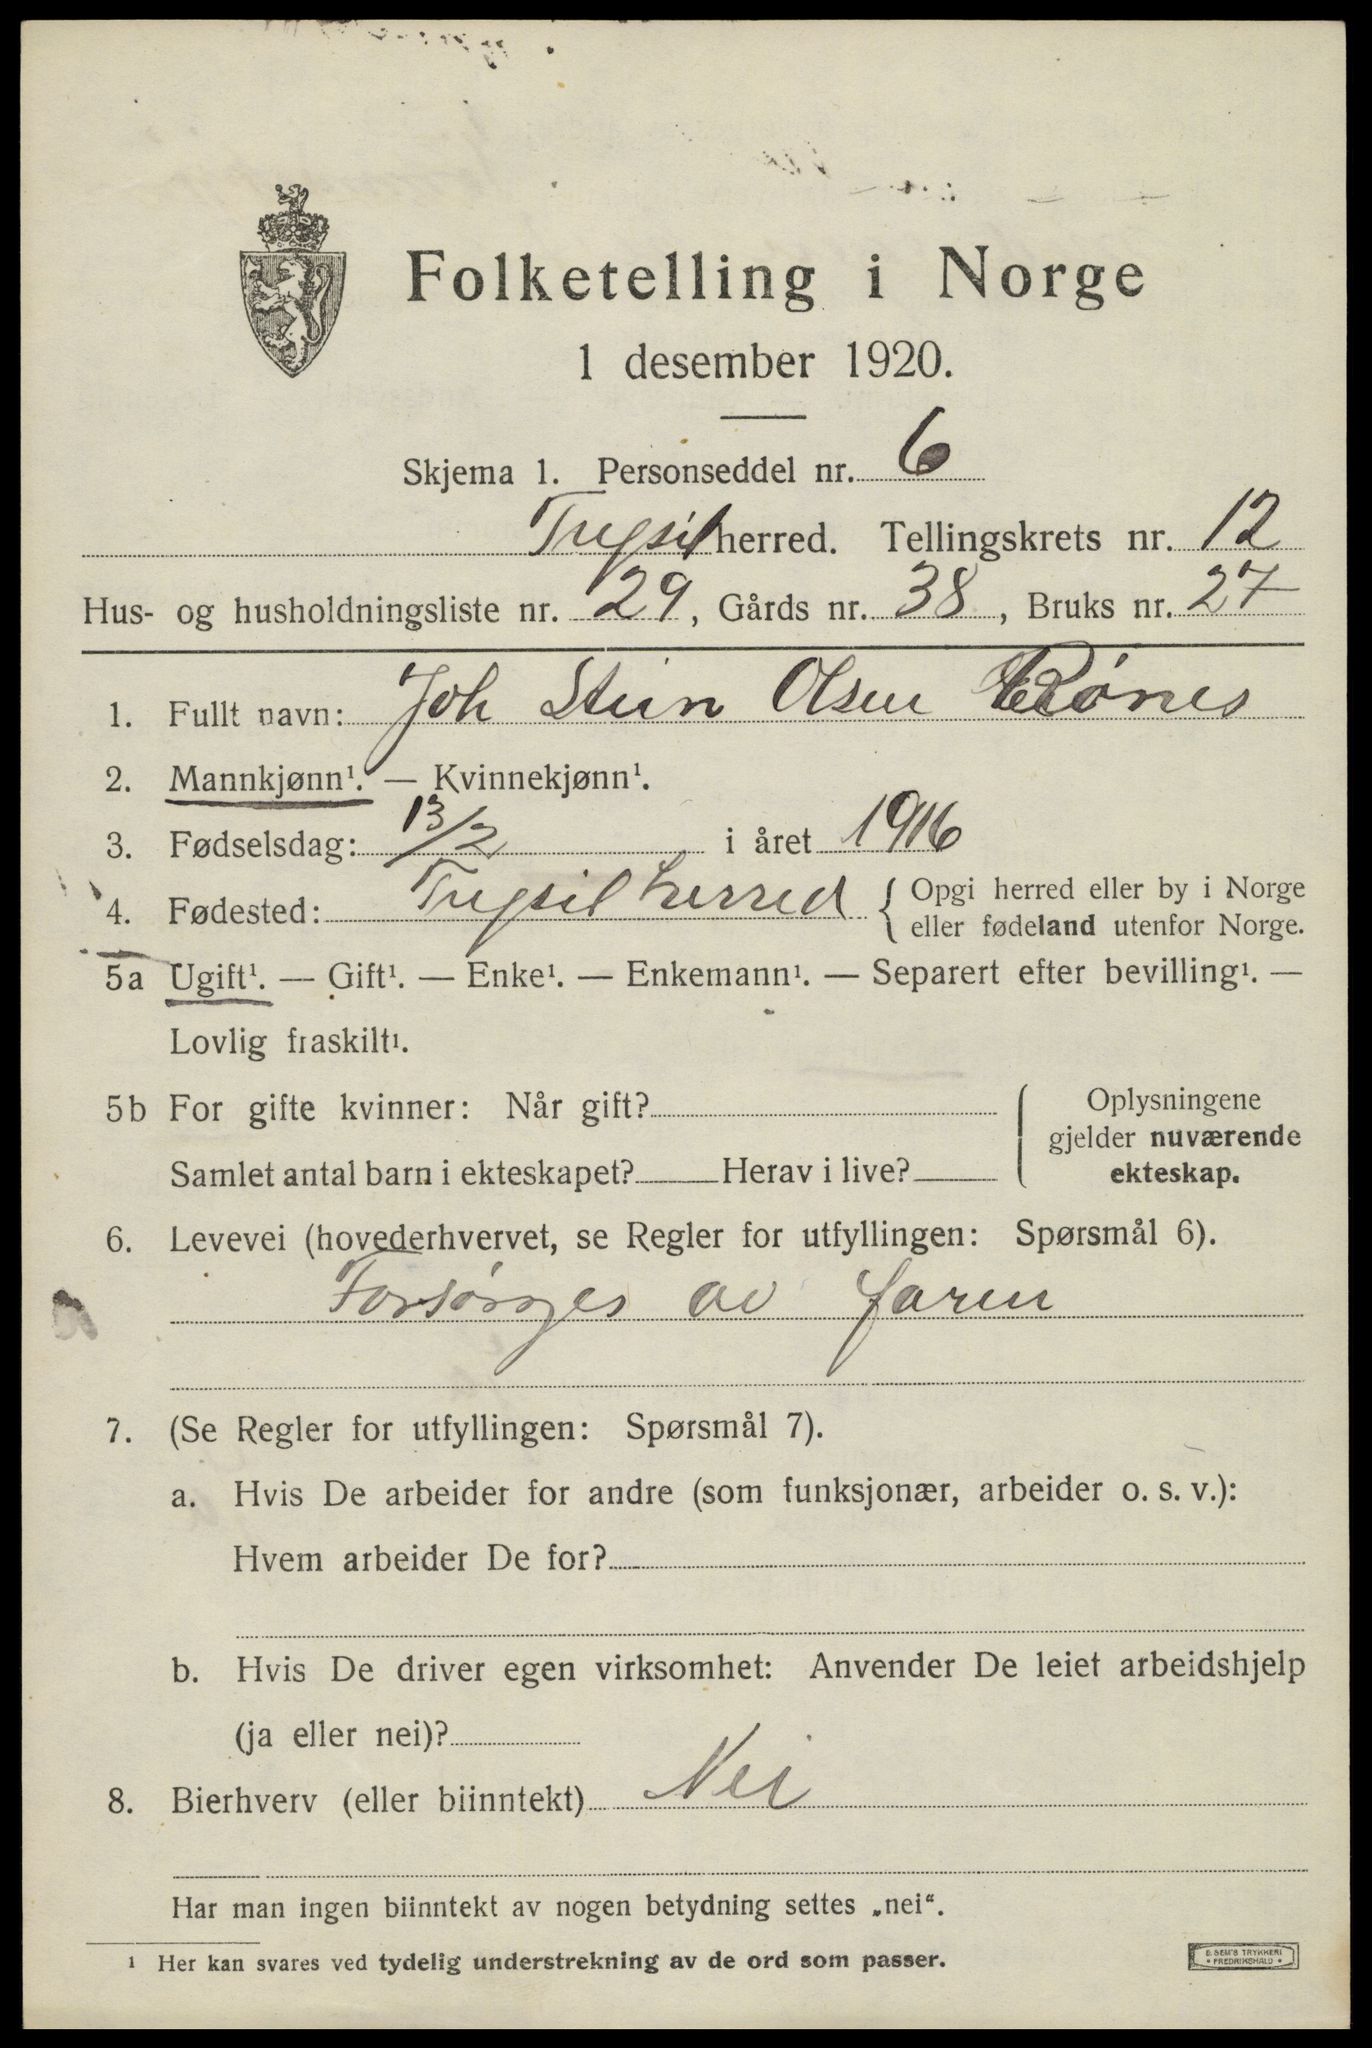 Folketelling i Norge
1 desember 1920.
Skjema 1. Personseddel nr. 6
Trysil herred. Tellingskrets nr. 12
Hus- og husholdningsliste nr. 29, Gårds nr. 38, Bruks nr. 27
1. Fullt navn: Joh Stein Olsen Rønes
2. Mannkjønn¹. — Kvinnekjønn¹.
3. Fødselsdag: 13/2 i året 1916
4. Fødested: Trysil herred { Opgi herred eller by i Norge
eller fødeland utenfor Norge.
5a Ugift¹. — Gift¹. — Enke¹. — Enkemann¹. — Separert efter bevilling¹. —
Lovlig fraskilt¹.
5b For gifte kvinner: Når gift?
Samlet antal barn i ekteskapet? Herav i live?
Oplysningene
gjelder nuværende
ekteskap.
6. Levevei (hovederhvervet, se Regler for utfyllingen: Spørsmål 6).
Forsørges av faren
7. (Se Regler for utfyllingen: Spørsmål 7).
a. Hvis De arbeider for andre (som funksjonær, arbeider o. s. v.):
Hvem arbeider De for?
b. Hvis De driver egen virksomhet: Anvender De leiet arbeidshjelp
(ja eller nei)?
8. Bierhverv (eller biinntekt) Nei
Har man ingen biinntekt av nogen betydning settes „nei“.
¹ Her kan svares ved tydelig understrekning av de ord som passer.
E. SEM'S TRYKKERI
• FREDRIKSHALD •